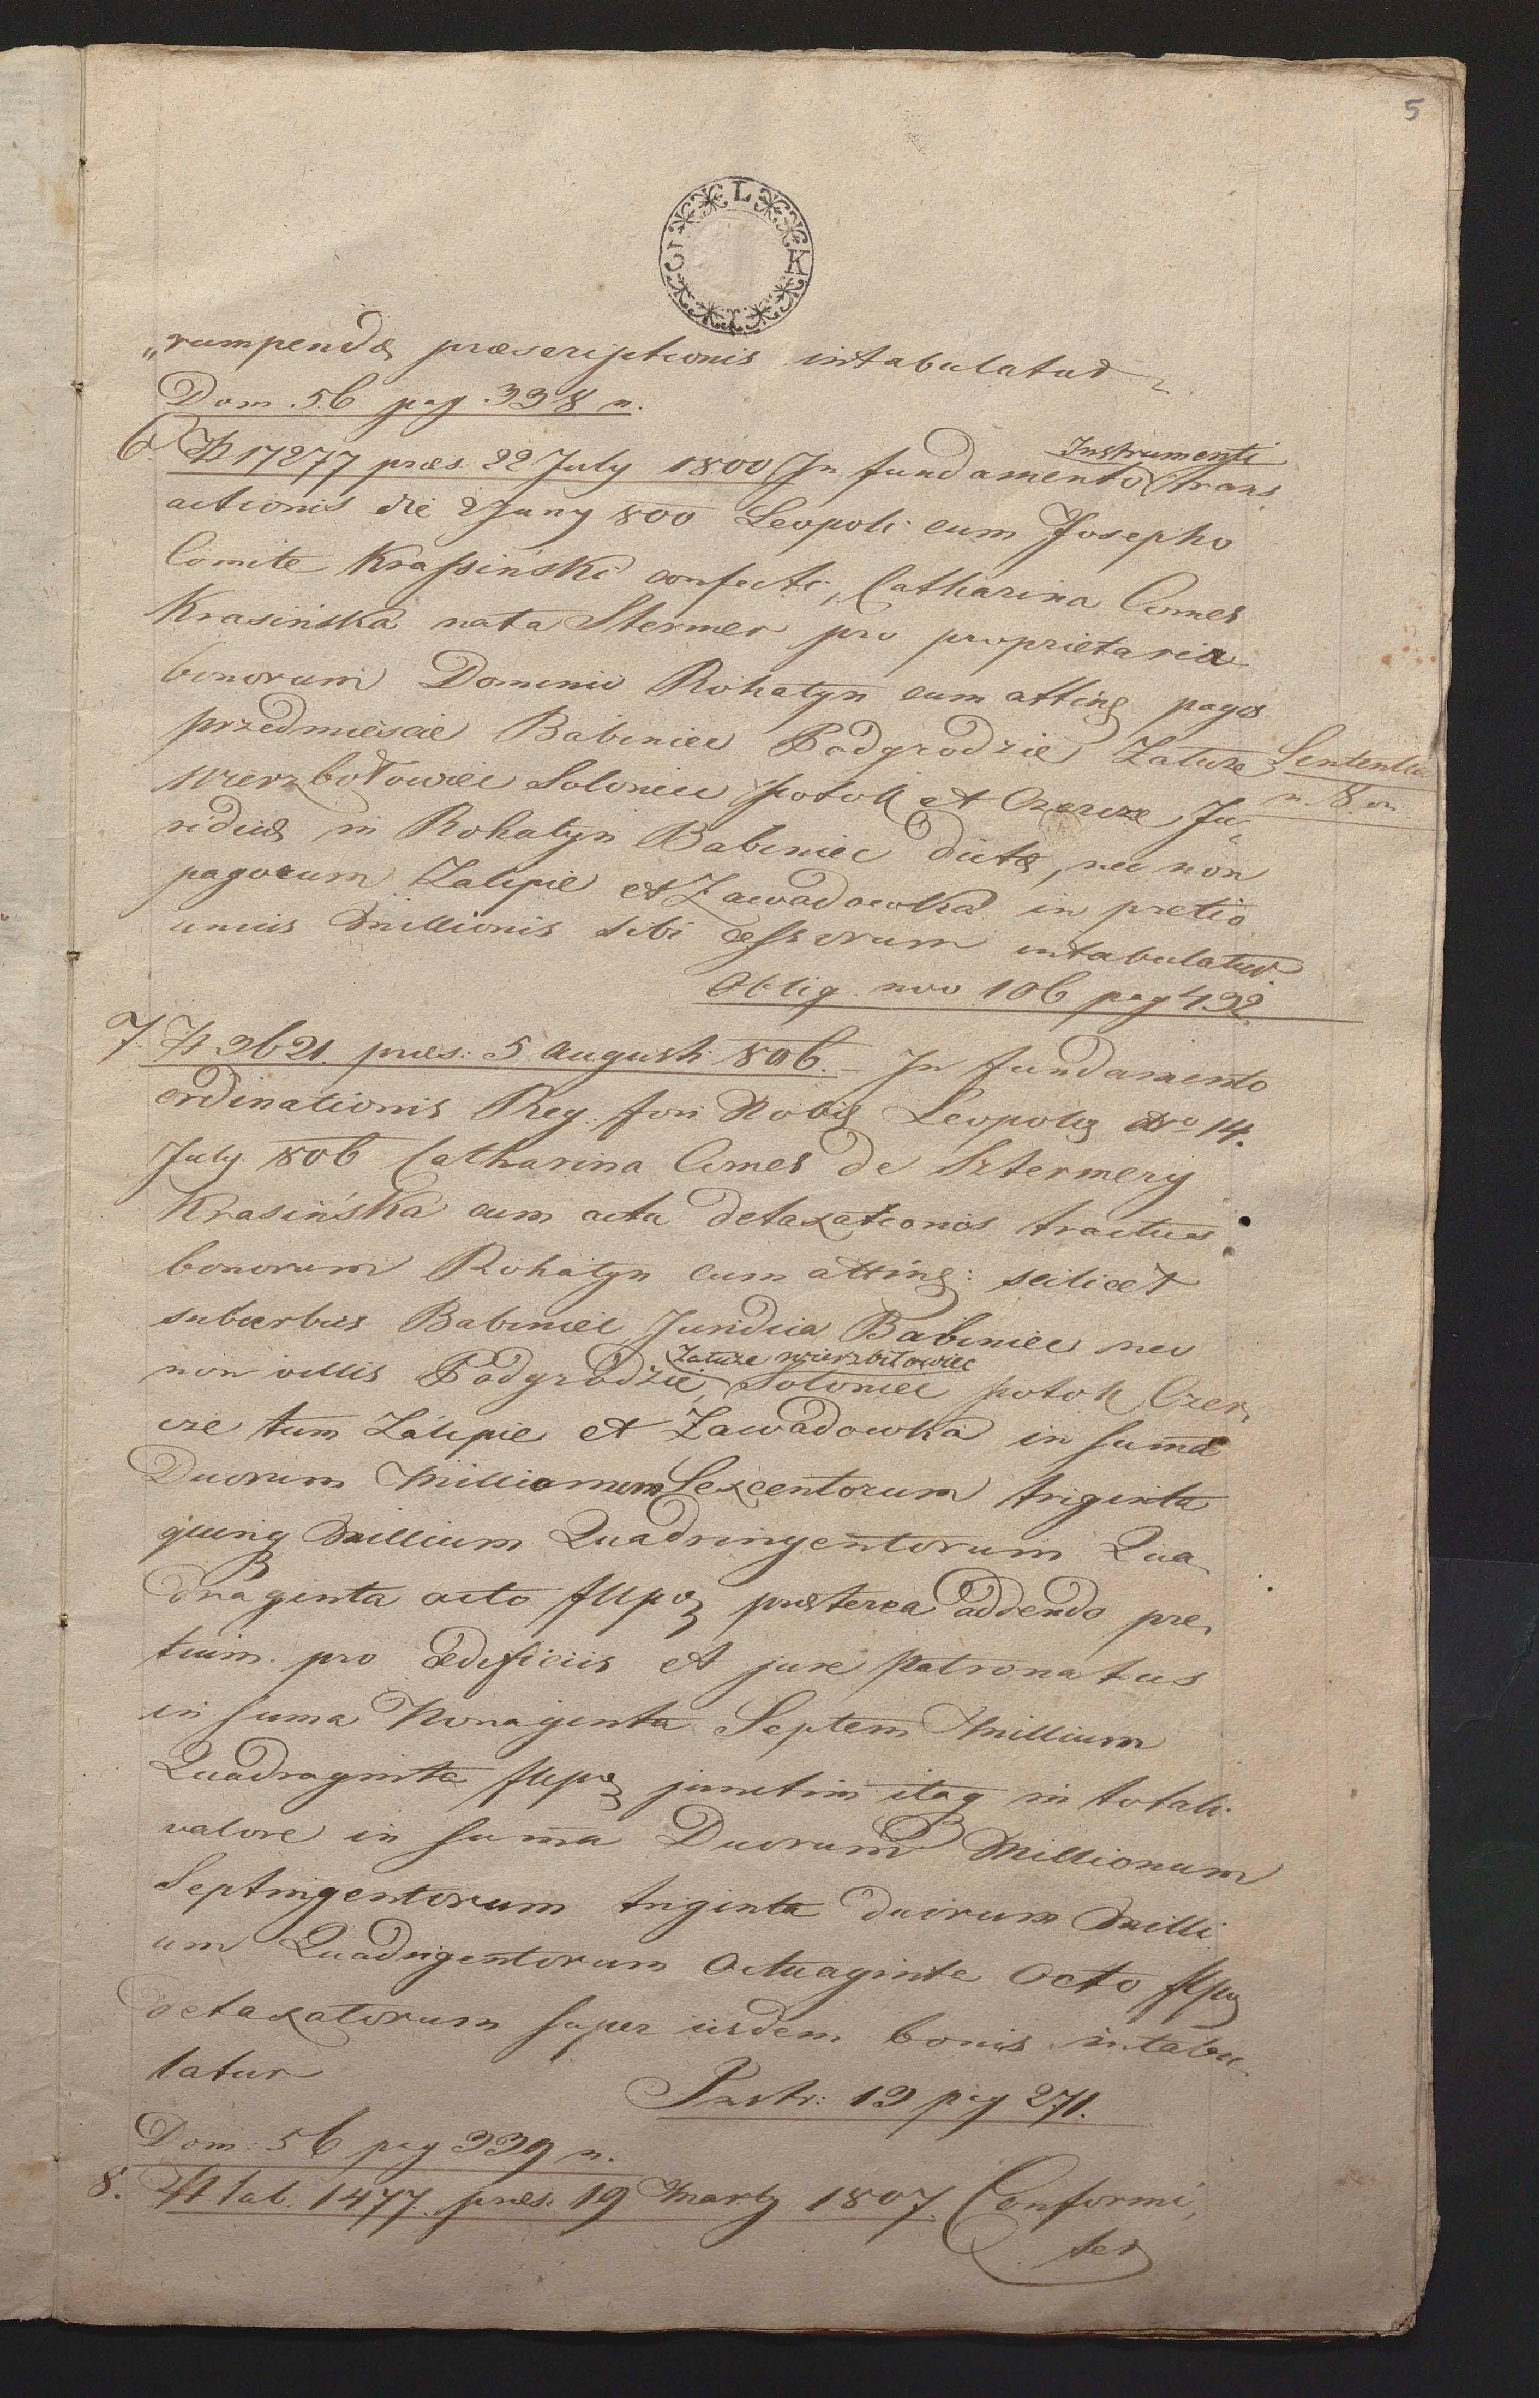 5
L K I C
„rumpendæ præscriptionis intabulatur
Dom. 56 pag. 338 n.
6. N 17277 præs. 22 July 1800 In fundamento Instrumenti trans„
actionis die 2 Juny 800 Leopoli cum Josepho
Comite Krassiński confecti, Catharina Comes
Krasińska nata Stermer pro proprietaria
bonorum Dominii Rohatyn cum atting pagis
przedmieście Babiniec Podgrodzie Załuże
Sententia
n. 8. on.
Wierzbołowiec Soloniec Potok et Czercze, Ju„
ridicæ in Rohatyn Babiniec dictæ, nec non
pagorum Zalipie et Zawadowka in pretio
unius Millionis sibi cessorum intabulatur
Oblig. nov 106 pag 432.
7. N 3621. præs: 5 Augusti 806. In fundamento
ordinationis Reg. fori Nobil Leopolis ddto 14.
July 806 Catharina Comes de Sztermery
Krasińska cum actu detaxationis tractus
bonorum Rohatyn cum atting: scilicet
suburbiis Babiniec Juridica Babiniec nec
non villis Podgrodzie, Załuże Wierzbiłowiec Soloniec Potok Czer„
cze tum Zalipie et Zawadowka in summa
Duorum Millionum Sexcentorum triginta
quinq Millium Quadringentorum Qua„
draginta octo flpol præterea addendo pre„
tium pro ædificiis et jure Patronatus
in suma Nonaginta Septem Millium
Quadraginta flpol junctim itaq in totali
valore in summa Duorum Millionum
Septingentorum triginta duorum Milli
um Quadrigentorum Octuaginta Octo flpol
detaxatorum super iisdem bonis intabu„
latur
Instr: 19 pag 271.
Dom: 56 pag 339 n.
8. N tab. 1477. præs. 19 Marty 1807. Conformi„
ter